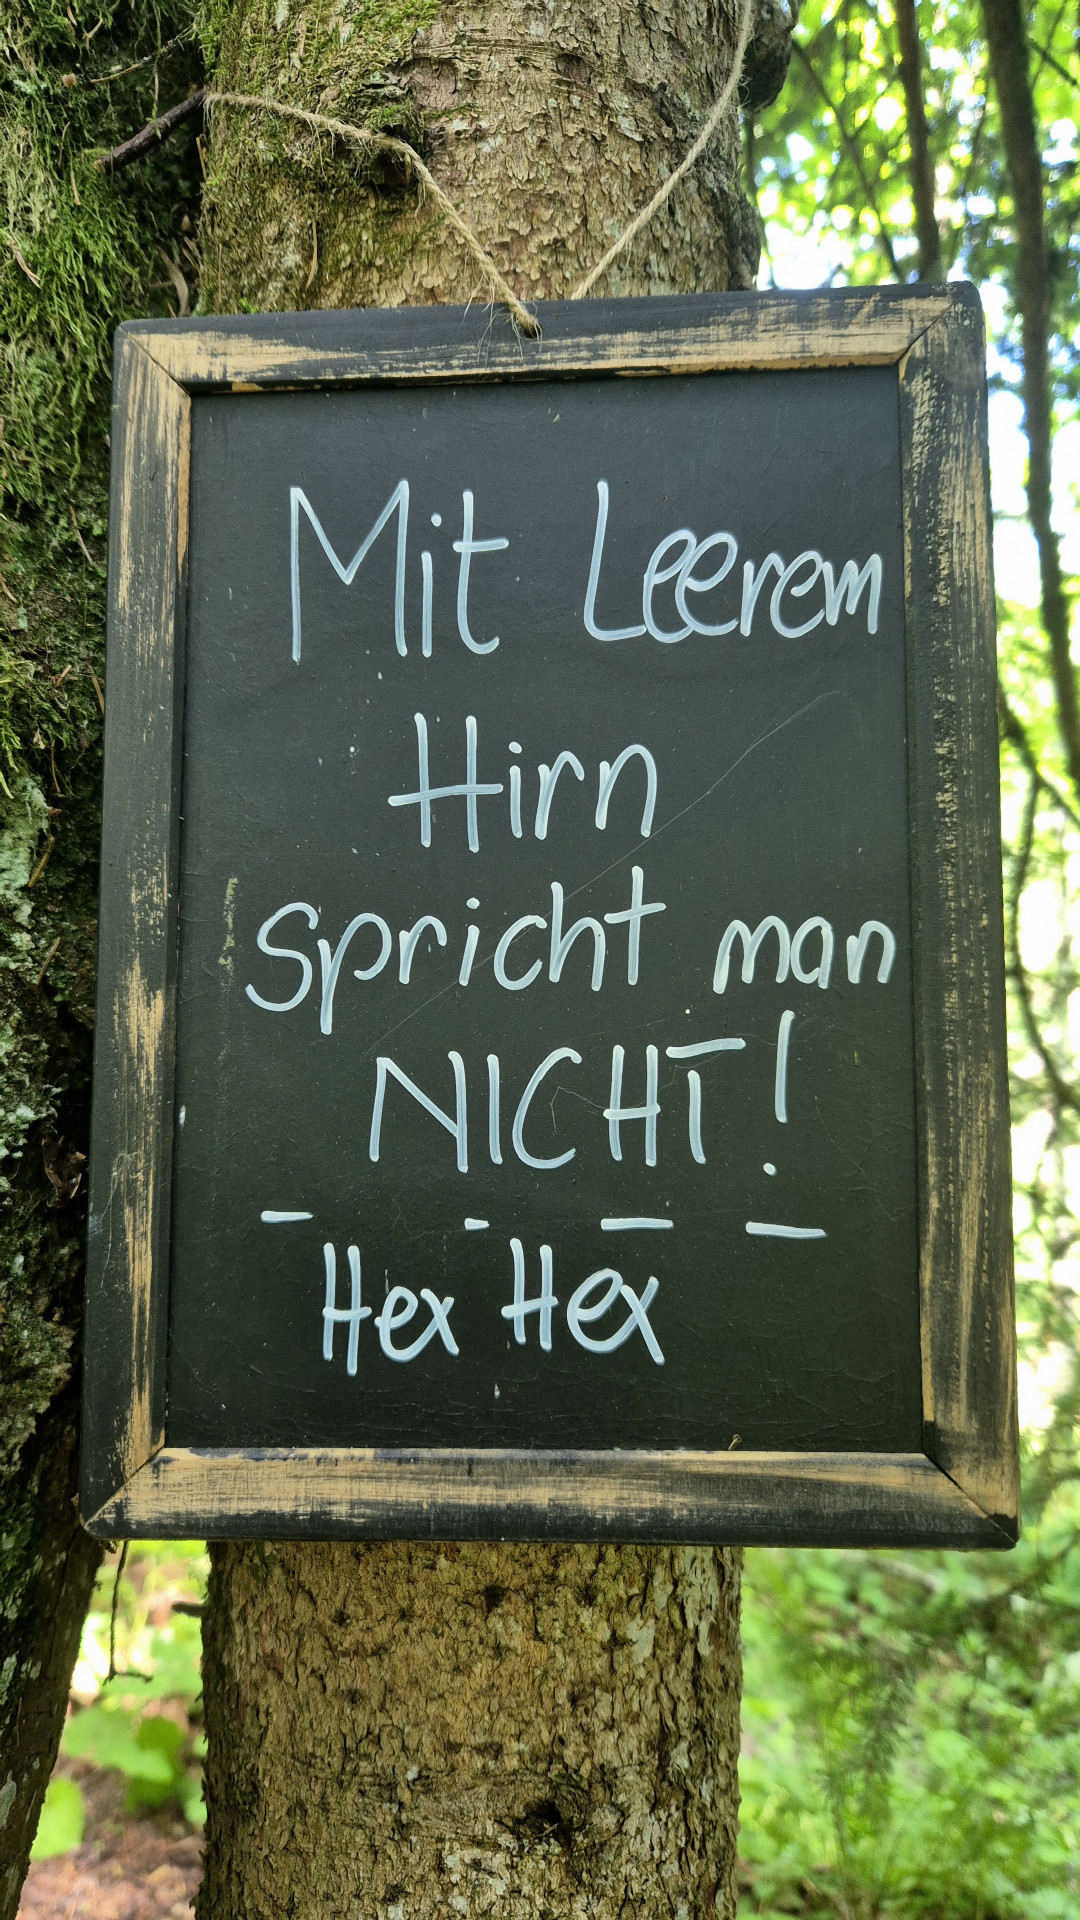 Mit Leerem
Hirn
spricht man
NICHT!
Hex Hex